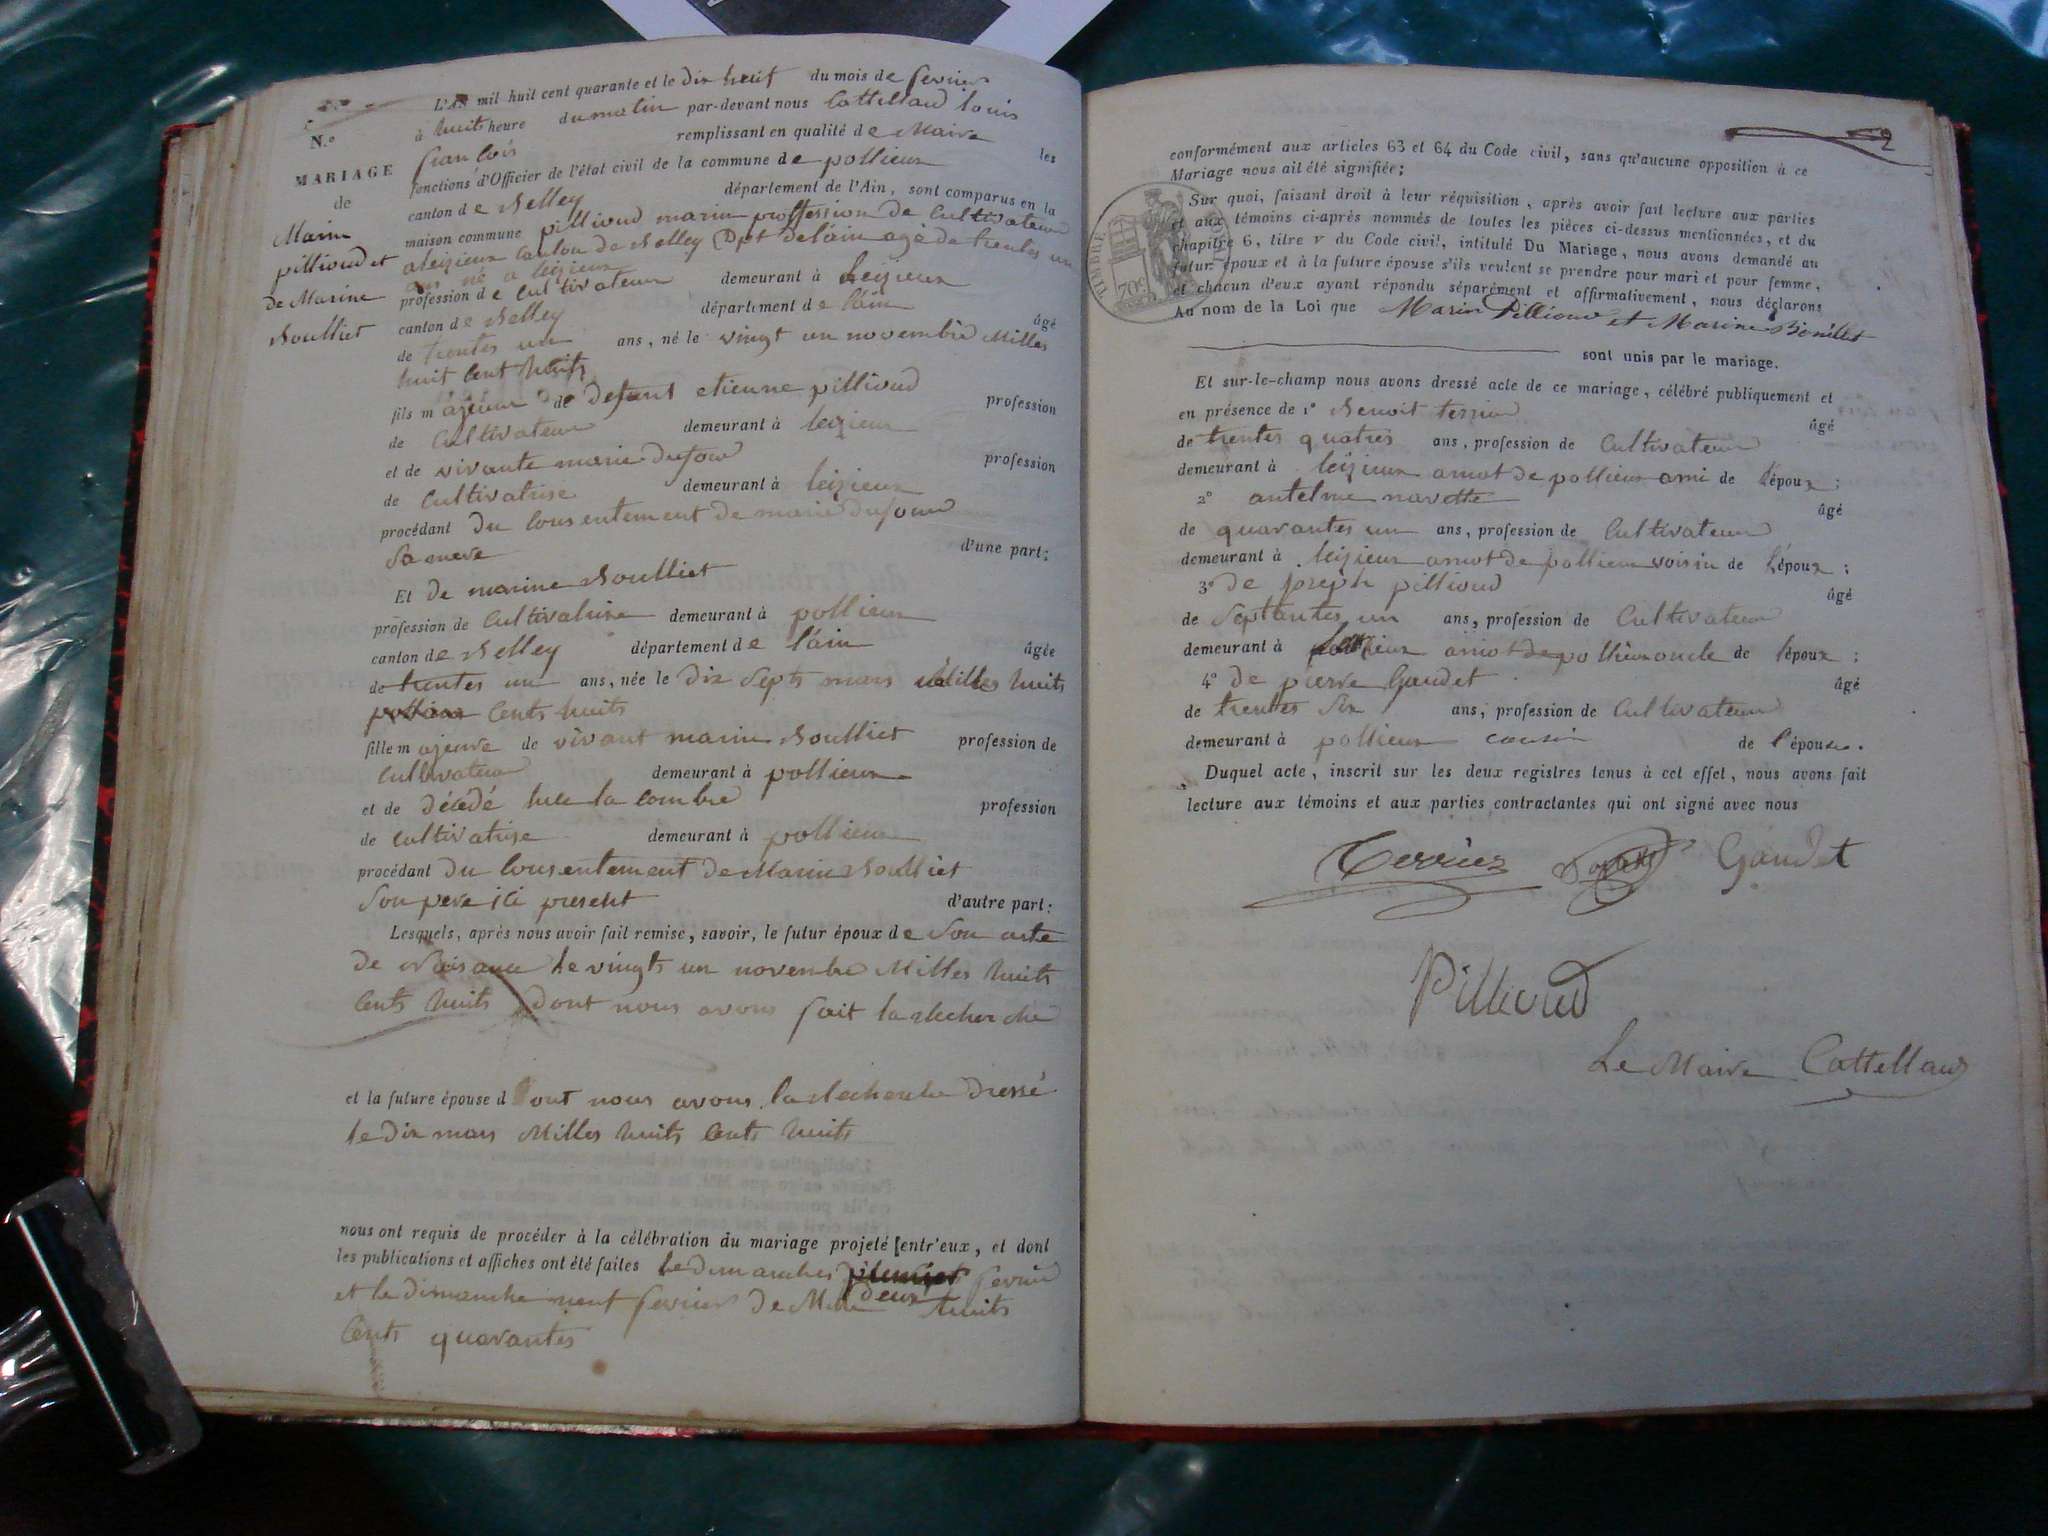 L'AN mil huit cent quarante et le dix huit du mois de fevrier
à huits heure du matin par-devant nous Cattelland louis
françois remplissant en qualité de Maire les
fonctions d'Officier de l'état civil de la commune de pollieux
canton de Belley département de l'Ain, sont comparus en la
maison commune pillioud marin proffession de Cultivateur
a leizieux canton de Belley Dpt de l'ain agé de trentes un
an né a leizieux
profession de cultivateur demeurant à Leizieux
canton de Belley département de lain âgé
de trentes un ans, né le vingt un novembre Milles
huit Cent huits
fils majeur de defunt etienne pillioud profession
de Cultivateur demeurant à leizieux
et de vivante marie dufour profession
de Cultivatrise demeurant à leizieux
procédant du Consentement de marie dufour
Sa mere d'une part;
Et De marine Boulliet
profession de Cultivatrise demeurant à pollieux
canton de Belley département de l'ain âgée
de trentes un ans, née le dix Septs mars Milles huits
Cents huits
fille majeure de vivant marin Boulliet profession de
Cultivateur demeurant à pollieux
et de décédé luce la combe profession
de cultivatrise demeurant à pollieux
procédant du Consentement de Marin Boulliet
Son pere ici present d'autre part:
Lesquels, après nous avoir fait remise, savoir, le futur époux de Son acte
de Naisance le vingts un novembre Milles huits
Cents huits dont nous avons fait la recherche
et la future épouse dont nous avons la recherche Dressé
le dix mars Milles huits Cents huits
nous ont requis de procéder à la célébration du mariage projeté entr'eux, et dont
les publications et affiches ont été faites le dimanches fevrier
deux
et le dimanche neuf fevrier de Mille huits
Cents quarantes
N.°
MARIAGE
de
Marin
pillioud et
de Marine
Boulliet
2
conformément aux articles 63 et 64 du Code civil, sans qu'aucune opposition à ce
Mariage nous ait été signifiée;
Sur quoi, faisant droit à leur réquisition, après avoir fait lecture aux parties
et aux témoins ci-après nommés de toutes les pièces ci-dessus mentionnées, et du
chapitre 6, titre v du Code civil, intitulé Du Mariage, nous avons demandé au
futur époux et à la future épouse s'ils veulent se prendre pour mari et pour femme,
et chacun d'eux ayant répondu séparément et affirmativement, nous déclarons
Au nom de la Loi que Marin Pillioud et Marine Boulliet
sont unis par le mariage.
TIMBRE
70c
Et sur-le-champ nous avons dressé acte de ce mariage, célébré publiquement et
en présence de 1° Benoit terrier âgé
de trentes quatres ans, profession de Cultivateur
demeurant à leizieux amot de pollieux ami de l'époux;
2° antelme navette âgé
de quarantes un ans, profession de Cultivateur
demeurant à leizieux amot de pollieux voisin de l'époux;
3° de joseph pillioud âgé
de Septantes un ans, profession de Cultivateur
demeurant à leizieux amot de pollieux oncle de l'époux;
4° de pierre Gaudet âgé
de trentes Six ans, profession de Cultivateur
demeurant à pollieux cousin de l'épouse.
Duquel acte, inscrit sur les deux registres tenus à cet effet, nous avons fait
lecture aux témoins et aux parties contractantes qui ont signé avec nous
Terrier Gaudet
Pillioud
Le Maire Cattelland